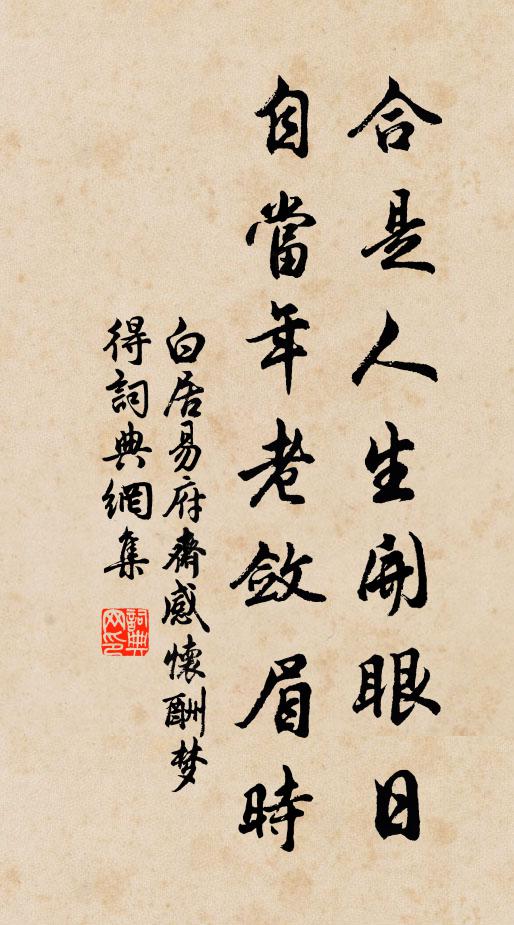 合是人生開眼日
自當年老斂眉時
白居易府齋感懷酬梦
得詞典網集
詞典网印